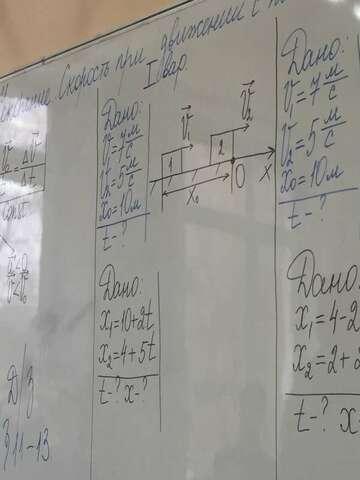 Скорость при движении с
I вар.
Δv⃗
Δt
Const
Д/з
§11-13
Дано:
v⃗₁=7 м/с
v⃗₂=5 м/с
x₀=10м
t-?
v⃗₁
v⃗₂
1
2
x₀
O
X
Дано:
x₁=10+2t
x₂=4+5t
t-? x-?
Дано:
v⃗₁=7 м/с
v⃗₂=5 м/с
x₀=10м
t-?
Дано:
x₁=4-2
x₂=2+
t-? x